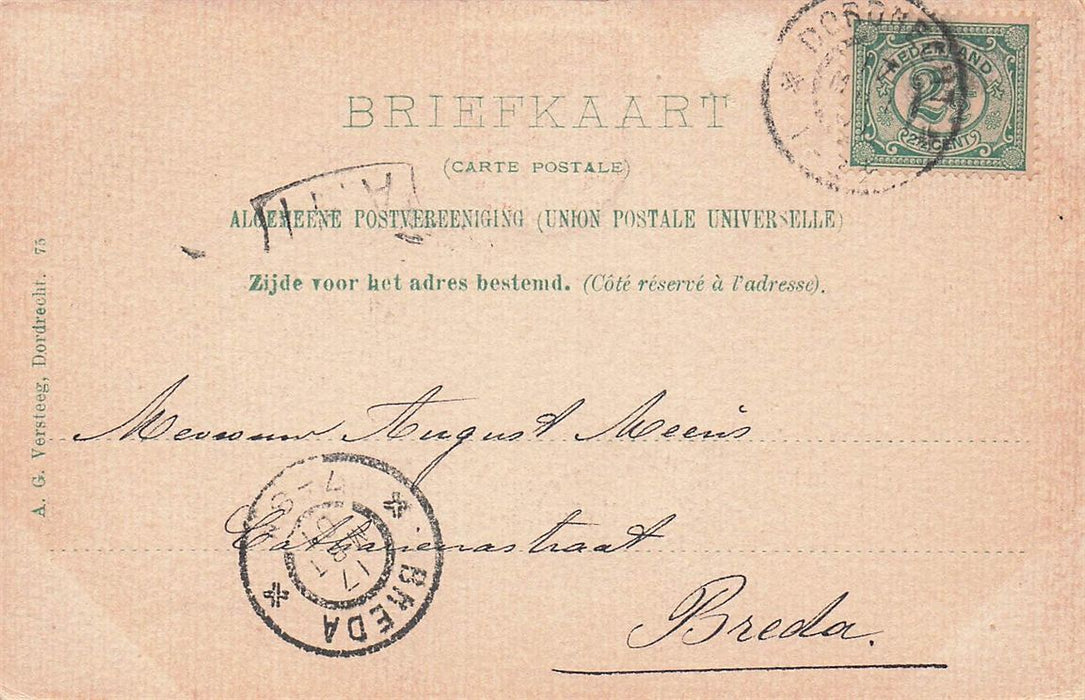 BRIEFKAART
(CARTE POSTALE)
ALGEMEENE POSTVEREENIGING (UNION POSTALE UNIVERSELLE)
Zijde voor het adres bestemd. (Côté réservé à l'adresse).
NEDERLAND
2½
2½ CENT
A. G. Versteeg, Dordrecht. 75
Mevrouw August Meeùs
Catharinastraat
Breda.
BREDA
7-8
17